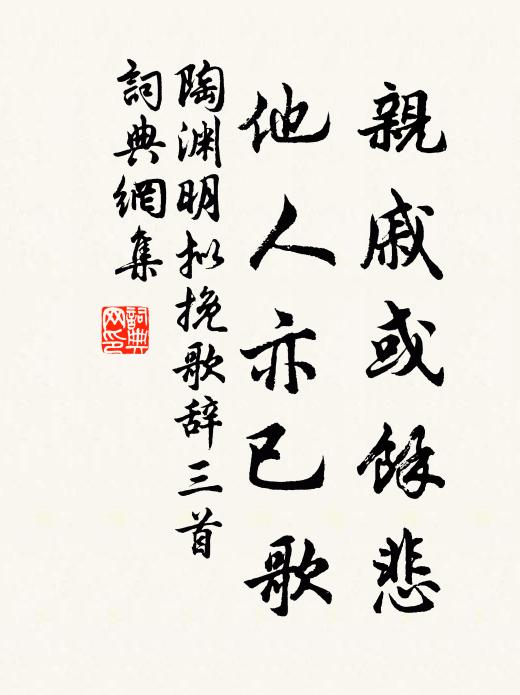 親戚或餘悲
他人亦已歌
陶渊明拟挽歌辞三首
詞典網集
詞典
网印